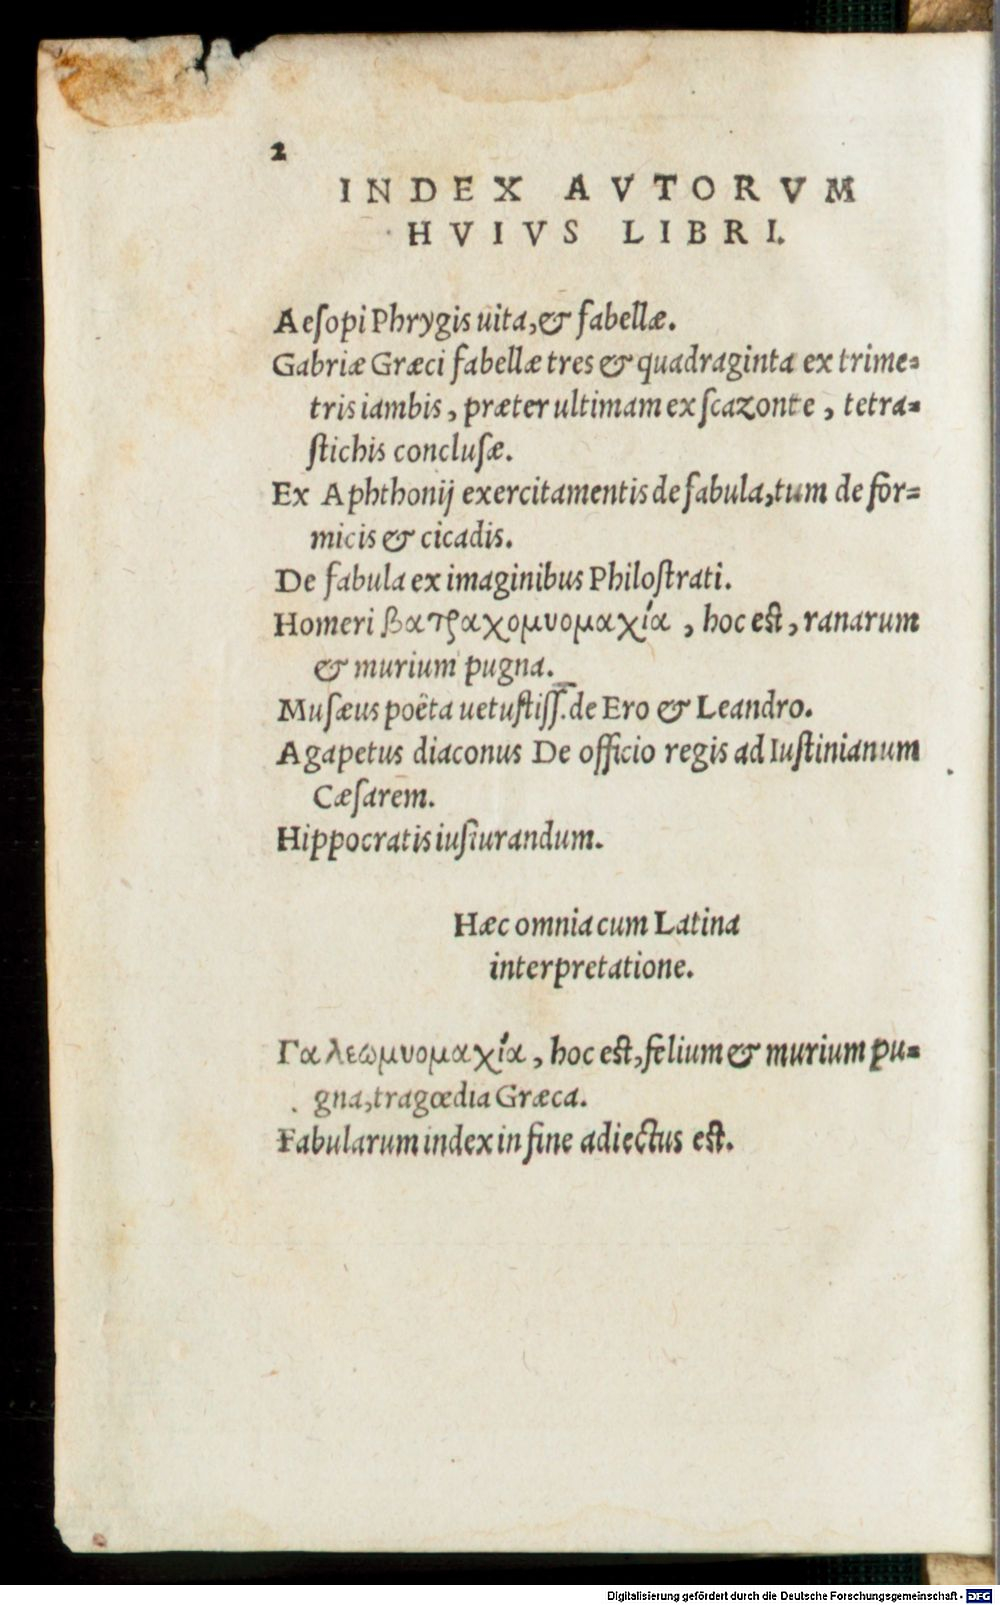 2
INDEX AVTORVM
HVIVS LIBRI.
Aeſopi Phrygis uita, & fabellæ.
Gabriæ Græci fabellæ tres & quadraginta ex trime=
tris iambis, præter ultimam ex ſcazonte, tetra=
ſtichis concluſæ.
Ex Aphthonij exercitamentis de fabula, tum de for=
micis & cicadis.
De fabula ex imaginibus Philoſtrati.
Homeri βατραχομυομαχία, hoc est, ranarum
& murium pugna.
Muſæus poëta uetuſtiſſ. de Ero & Leandro.
Agapetus diaconus De officio regis ad Iuſtinianum
Cæſarem.
Hippocratis iuſiurandum.
Hæc omnia cum Latina
interpretatione.
Γαλεωμυομαχία, hoc est, felium & murium pu=
gna, tragœdia Græca.
Fabularum index in fine adiectus est.
Digitalisierung gefördert durch die Deutsche Forschungsgemeinschaft - DFG